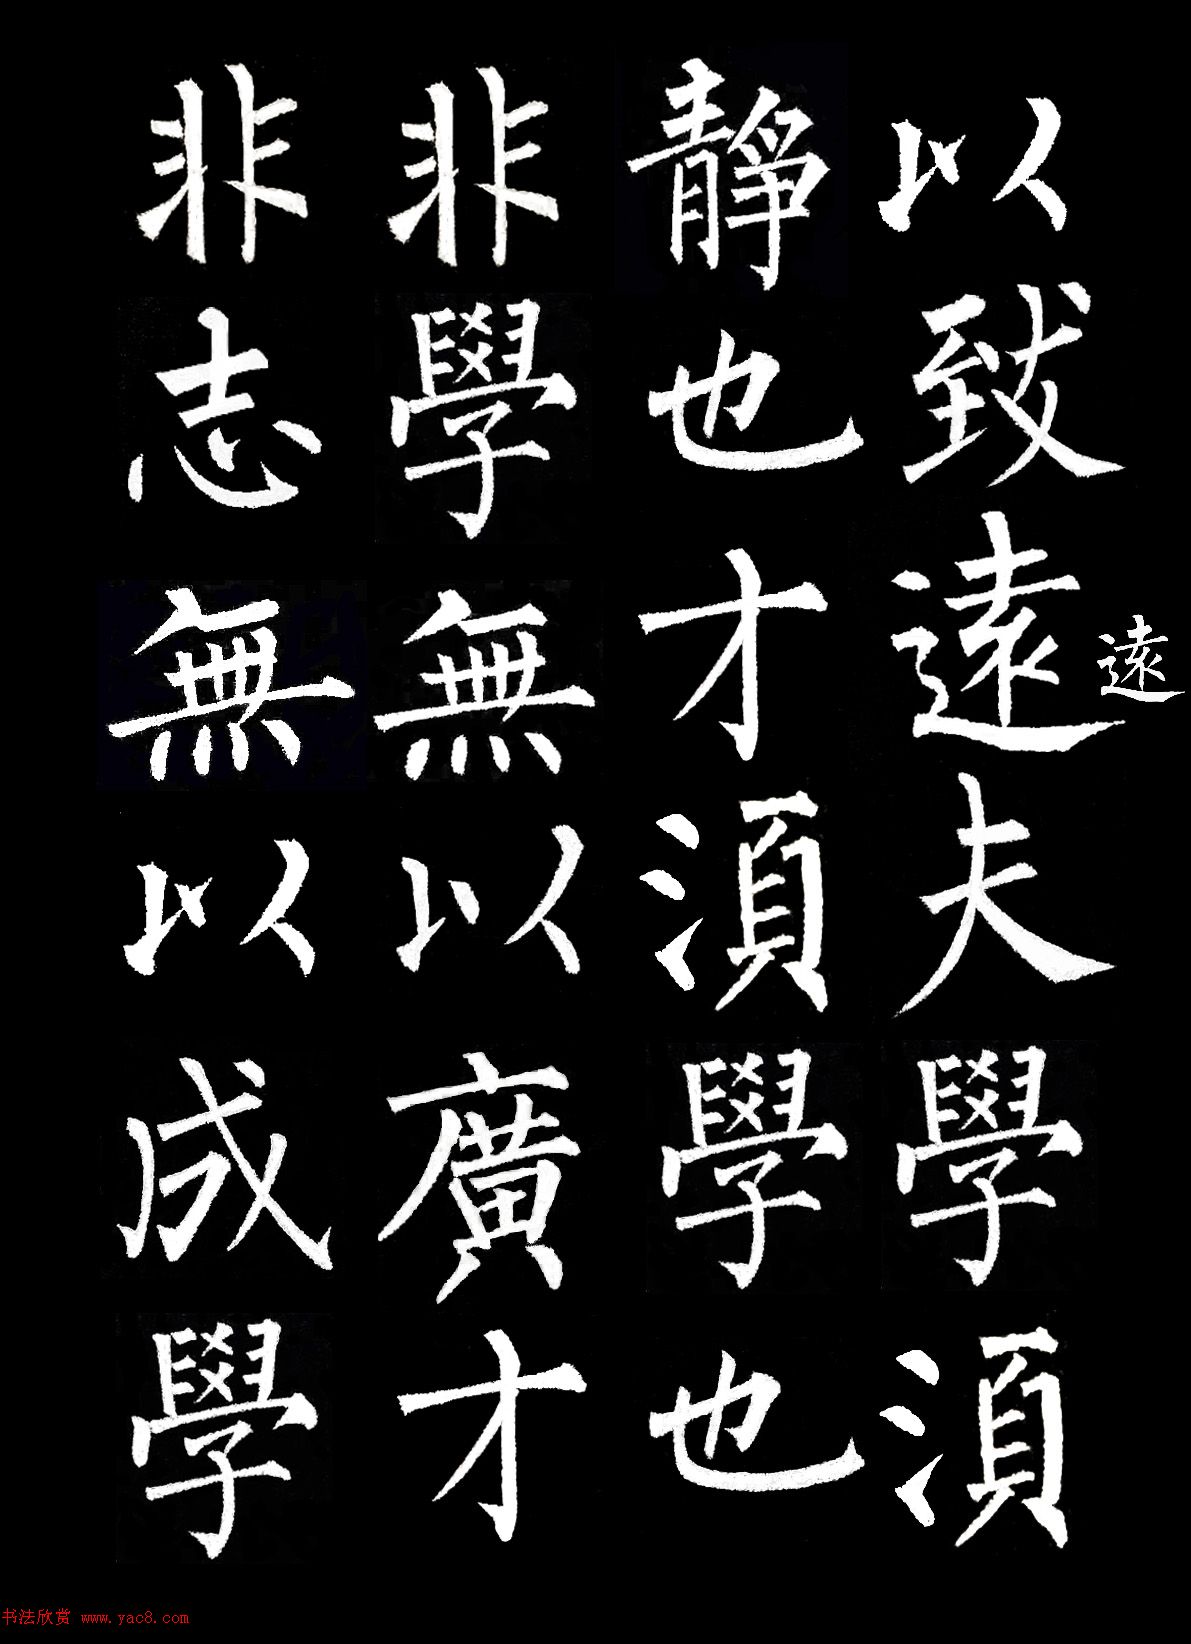 以致遠夫學須
遠
靜也才須學也
非學無以廣才
非志無以成學
书法欣赏 www.yac8.com